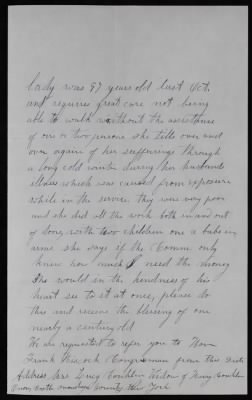 lady was 97 years old last Oct.
and requires great care not being
able to walk without the assistance
of one or two persons she tells over and
over again of her sufferings through
a long cold winter during her husbands
illness which was caused from exposure
while in the service they were very poor
and she did all the work both in and out
of doors, with two children one a babe in
arms she says if the Comm. only
knew how much I need the money
he would in the kindness of his
heart see to it at once, please do
this and receive the blessing of one
nearly a century old
We are requested to refer you to Hon
Frank Congressman from this Dist
Address Mrs Lucy Conklin Widow of Henry Conklin
County New York